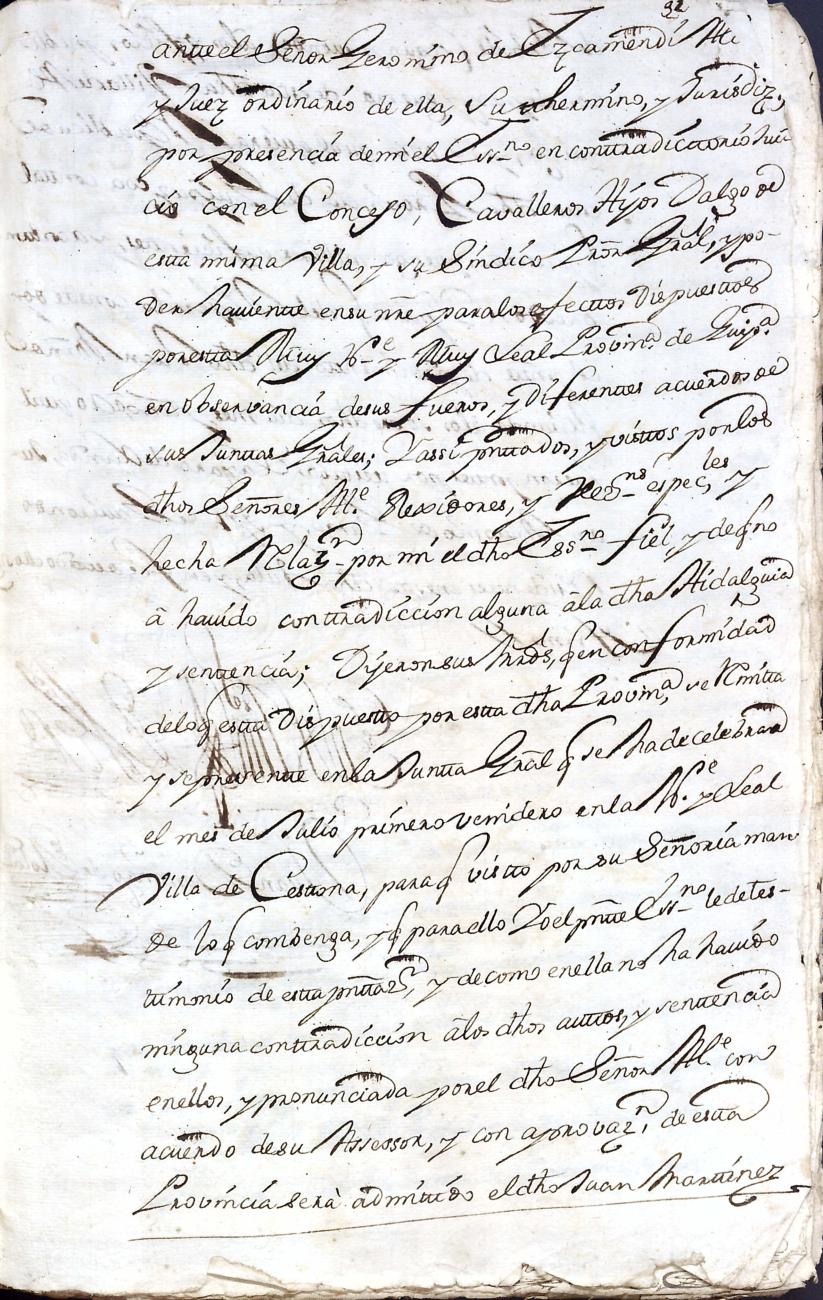 32
antte el Señor Geromino de Ezcamendi Al.e
y Juez ordinario de ella, su thermino, y Jurisdiz.
por presencia de mi el Ess.no en contradictorio Jui
cio con el Concejo, Cavalleros Hijos Dalgo de
estta misma Villa, y su Sindico Pror Gral, y po-
der haviente en su nre para los efecttos Dispuesttos
por estta Muy N.e y Muy Leal Provin.a de Guip.a
en observancia de sus fueros, y diferentes acuerdos de
sus Junttas Grales; Y assi pnttados, y visttos por los
dhos Señores Al.e Rexidores, y vez.nos espec.les y
hecha Relaz.n por mi el dho Ess.no fiel, y de q no
à havido conttradiccion alguna à la dha Hidalguia
y senttencia; Dijeron sus mrds, q en conformidad
de lo q estta Dispuestto por estta dha Provin.a se Remitta
y se presentte en la Juntta Gral q se ha de celebrar
el mes de Julio primero venidero en la N.e y Leal
Villa de Cesttona, para q vistto por su Señoria man
de lo q combenga, y q para ello Yo el pntte Ess.no le de tes-
timonio de estta pnttaz.n, y de como en ella no ha havido
ninguna conttradiccion à los dhos auttos, y senttencia
en ellos, y pronunciada por el dho Señor Al.e con
acuerdo de su Assessor, y con aprovaz.n de estta
Provincia serà admitido el dho Juan Marttinez